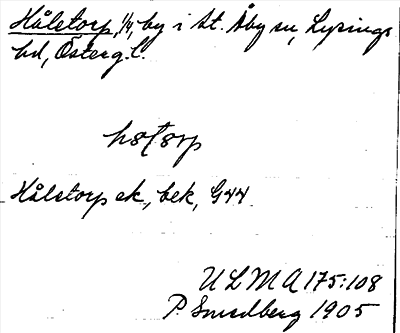 Hålstorp, 1/4, by i St. Åby sn, Lysings
hd, Österg. l.
Hålstorp ek, bek, G44
ULMA 175:108
P. Smedberg 1905